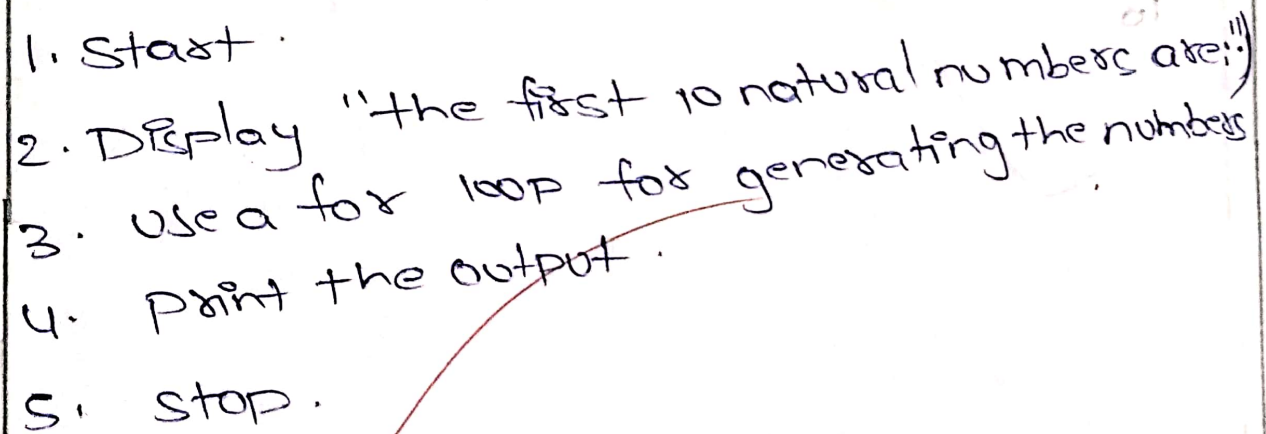 1. Start.
2. Display "the first 10 natural numbers are:")
3. Use a for loop for generating the numbers
4. print the output.
5. stop.